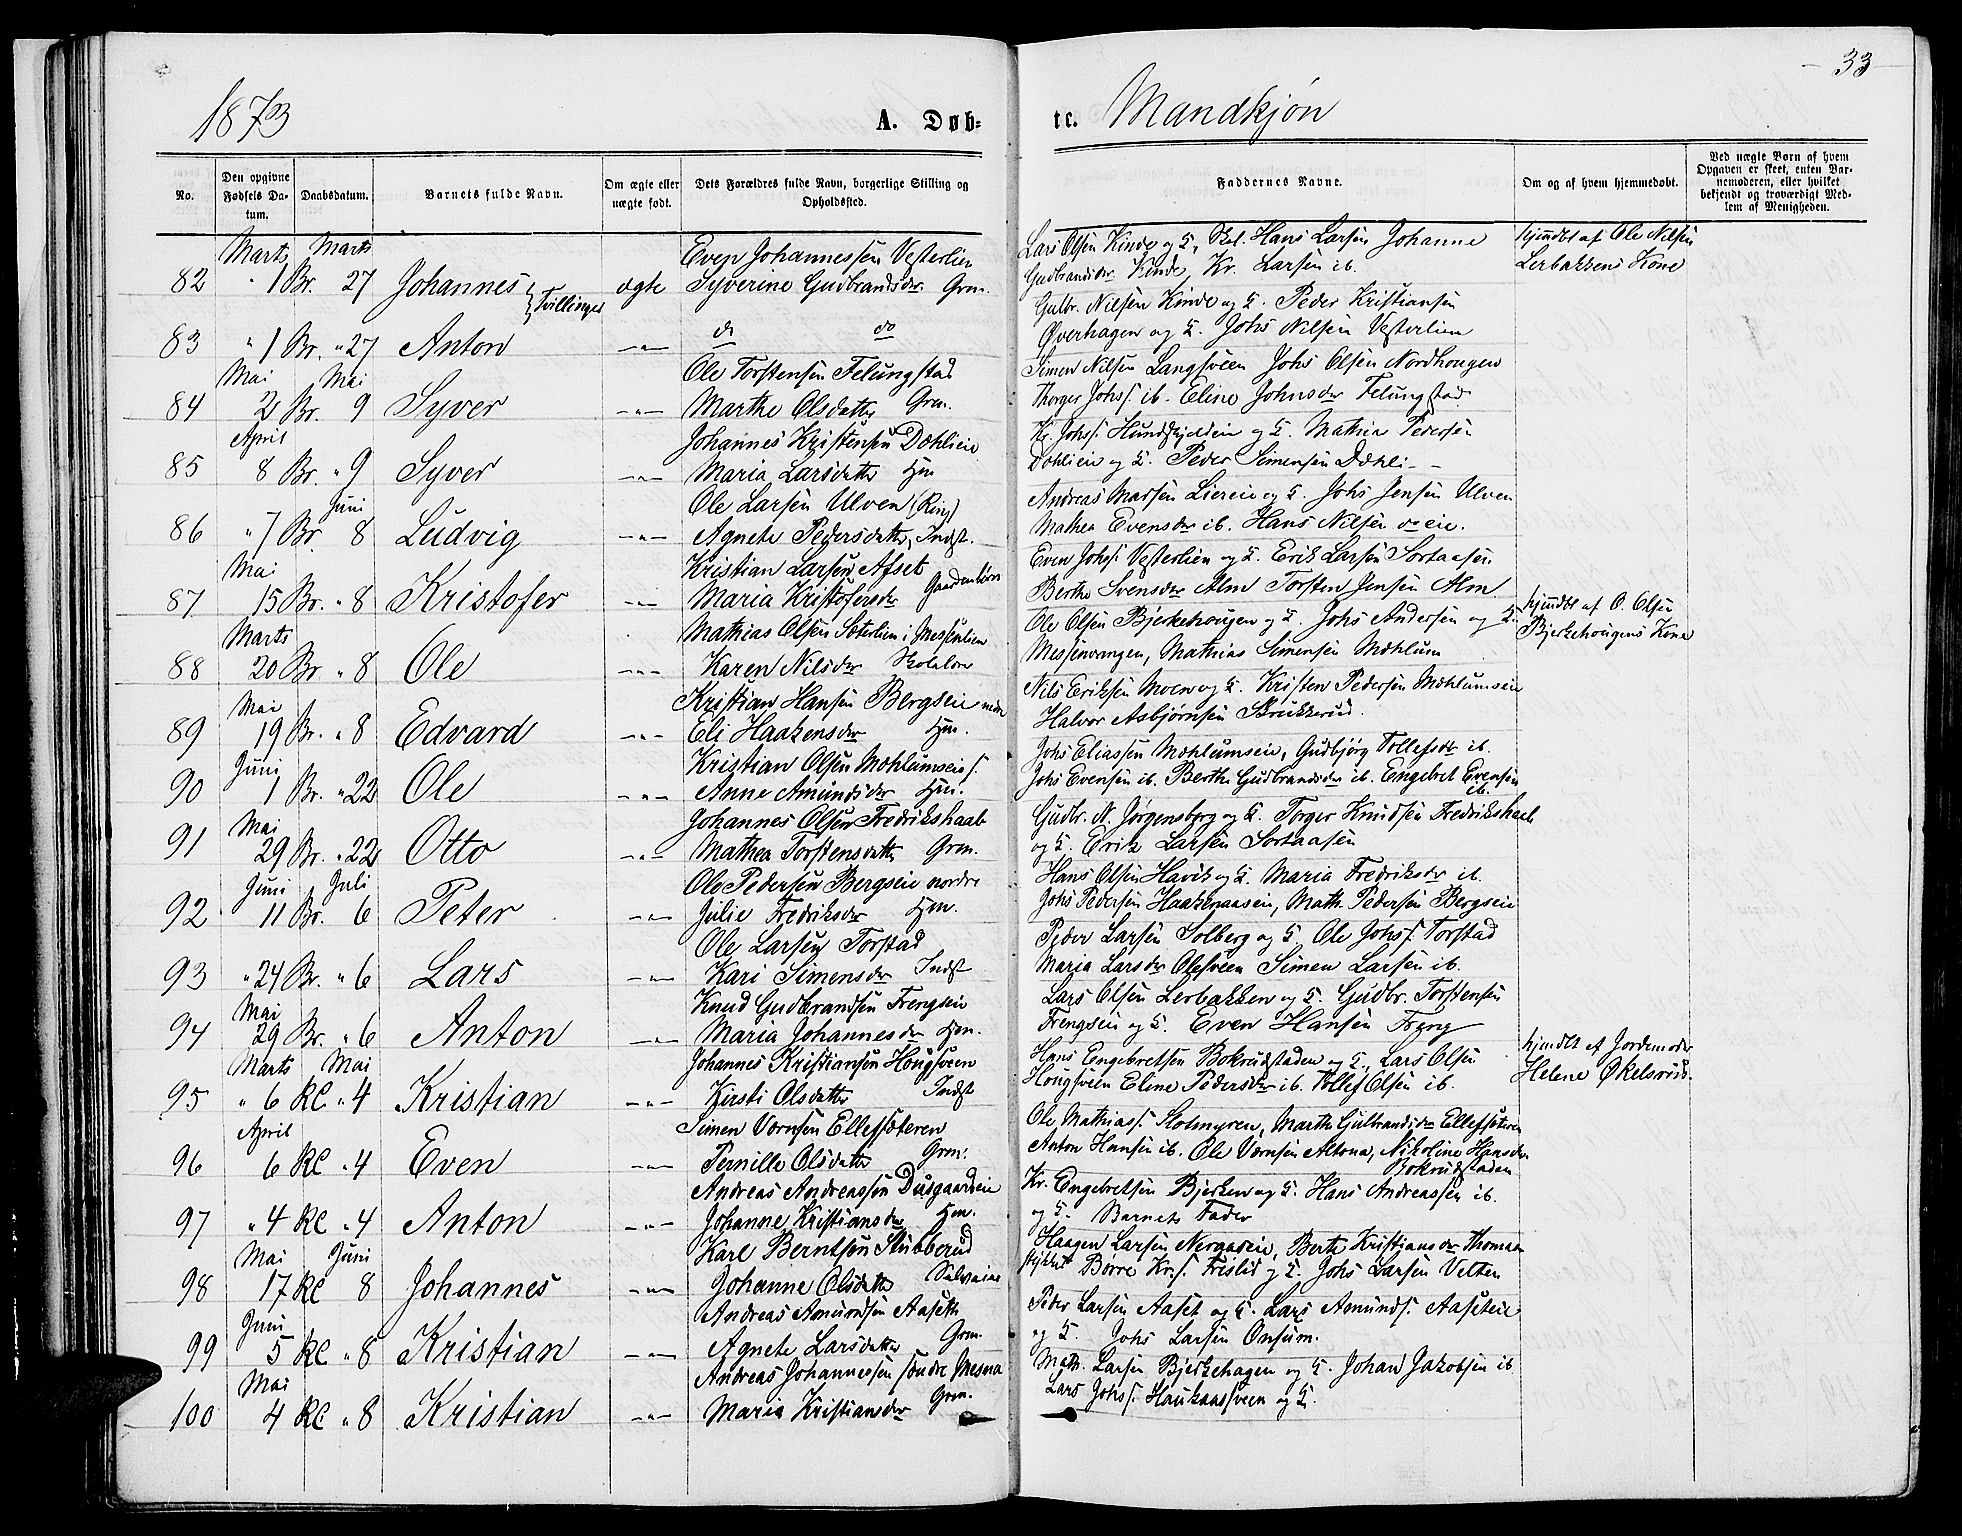 33
1873
A. Døb-
te.
Mandkjön
No.
Den opgivne Fødsels Datum.
Daabsdatum.
Barnets fulde Navn.
Om ægte eller uægte født.
Dets Forældres fulde Navn, borgerlige Stilling og Opholdssted.
Faddernes Navne.
Om og af hvem hjemmedøbt.
Ved uægte Børn af hvem Opgaven er skeet, enten Barnemoderen, eller hvilket bekjendt og troværdigt Medlem af Menigheden.
Marts Marts Even Johannessen Vesterlien Lars Olsen Kinde og K, Hans Larsen Johanne hjmdbt af Ole Nilsen
82 " 1 Br. 27 Johannes } Tvillinger ægte Syverine Gudbrandsdr Grm. Gudbrandsdr Kinde, Kr. Larsen ib. Lerbakkens Kone
Gulbr. Nilsen Kinde og K. Peder Kristiansen
83 " 1 Br. " 27 Anton —"— do do Øverhagen og K. Johs Nilsen Vesterlien
Mai Mai Ole Torstensen Felungstad Simen Nilsen Langsveen Johs Olsen Nordhougen
84 2 Br. 9 Syver —"— Marthe Olsdatter Grm. Thorger Johs. ib. Eline Johnsdr Felungstad
April Johannes Kristensen Dæhlieie Kr. Johs. og K. Mathia Pedersen
85 8 Br. " 9 Syver —"— Maria Larsdatter Hm Dæhlieie og K. Peder Simensen Dæhli - -
Juni Ole Larsen Ulven (Ring) Andreas Larsen Liereie og K. Johs Jensen Ulven
86 " 7 Br. 8 Ludvig —"— Agnete Pedersdatter, Indst. Mathea Evensdr ib. Hans Nilsen do eie.
Mai Kristian Larsen Afset Even Johs. Vesterlien og K. Erik Larsen Sortaasen
87 15 Br. " 8 Kristofer —"— Maria Kristofersdr Berthe Svensdr Alm Torsten Jensen Alm
Marts Mathias Olsen Sæterlien i Messenlien Ole Olsen Bjerkehougen og K. Johs Andersen og K. hjmdbt af O. Olsen
88 20 Br. " 8 Ole —"— Karen Nilsdr Messenvangen, Mathias Simensen Mæhlum Bjerkehougens Kone
Mai Kristian Hansen Bergseie nedre Nils Eriksen Moen og K. Kristen Pedersen Mæhlumseie
89 19 Br. " 8 Edvard —"— Eli Haakensdr Hm. Halvor Asbjørnsen Skrukkerud.
Juni Kristian Olsen Mæhlumseie s. Johs Eliassen Mæhlumseie, Gudbjørg Tollefsdr ib.
90 1 Br. " 22 Ole —"— Anne Amundsdr Hm. Johs Evensen ib. Berthe Gudbrandsdr ib. Engebret Evensen ib.
Mai Johannes Olsen Fredrikshaab Gudbr. N. Jørgensberg og K. Torger Knudsen Fredrikshaab
91 29 Br. " 22 Otto —"— Mathea Torstensdatter Grm. og K. Erik Larsen Sortaasen
Juni Juli Ole Pedersen Bergseie nordre Hans Olsen Havik og K. Maria Fredriksdr ib.
92 11 Br. 6 Peter —"— Julie Fredriksdr Hm. Johs Pedersen Haakenaasen, Math. Pedersen Bergseie
Ole Larsen Torstad Peder Larsen Solberg og K. Ole Johs. Torstad
93 " 24 Br. " 6 Lars —"— Kari Simensdr Indst Maria Larsdr Olesveen Simen Larsen ib.
Mai Knud Gudbrandsen Frengseie Lars Olsen Lerbakken og K. Gudbr. Torstensen
94 29 Br. " 6 Anton —"— Maria Johannesdr Hm. Frengseie og K. Even Hansen Freng
Marts Mai Johannes Kristiansen Hougsveen Hans Engebretsen Bokrudstaden og K. Lars Olsen hjemdbt af Jordemoder
95 " 6 Kl " 4 Kristian —"— Kirsti Olsdatter Indst Hougsveen Eline Pedersdr ib. Tollef Olsen ib. Helene Økelsrud.
April Simen Vornsen Ellefsæteren Ole Mathiass. Slotmyren, Marthe Gulbrandsdr Ellefsæteren
96 6 Kl " 4 Even —"— Pernille Olsdatter Grm. Anton Hansen ib. Ole Vornsen Altona, Nikoline Hansdr
Bokrudstaden
Andreas Andreassen Dusgaardeie Kr. Engebretsen Bjerken og K. Hans Andreassen ib.
97 " 4 Kl " 4 Anton —"— Johanne Kristiansdr Hm. og K. Barnets Fader
Mai Juni Karl Berntsen Stubberud Haagen Larsen Nergaseie, Berthe Kristiansdr Thomas
98 17 Kl 8 Johannes —"— Johanne Olsdatter Selveier stykket Børre Kr.s. Frislid og K. Johs Larsen Velten
Juni Andreas Amundsen Aaseth Peder Larsen Aaset og K. Lars Amunds. Aaseteie
99 5 Kl " 8 Kristian —"— Agnete Larsdatter Grm. og K. Johs Larsen Onsum.
Mai Andreas Johannessen søndre Mesna Math. Larsen Bjerkehagen og K. Johan Jakobsen ib
100 4 Kl " 8 Kristian —"— Maria Kristiansdr Grm. Lars Johs. Haukaassveen og K.